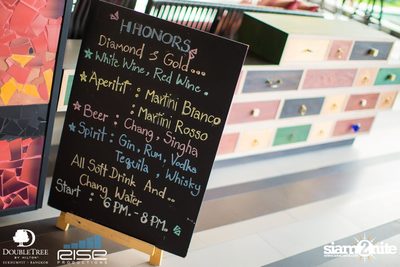 HHONORS
Diamond & Gold...
White Wine, Red Wine.
Aperitif : Martini Bianco
: Martini Rosso
Beer : Chang, Singha
Spirit : Gin, Rum, Vodka
Tequila, Whisky
All Soft Drink And...
Chang Water
Start : 6 P.M. - 8 P.M.
DOUBLETREE
BY HILTON
SUKHUMVIT - BANGKOK
RISE
PRODUCTIONS
siam2nite